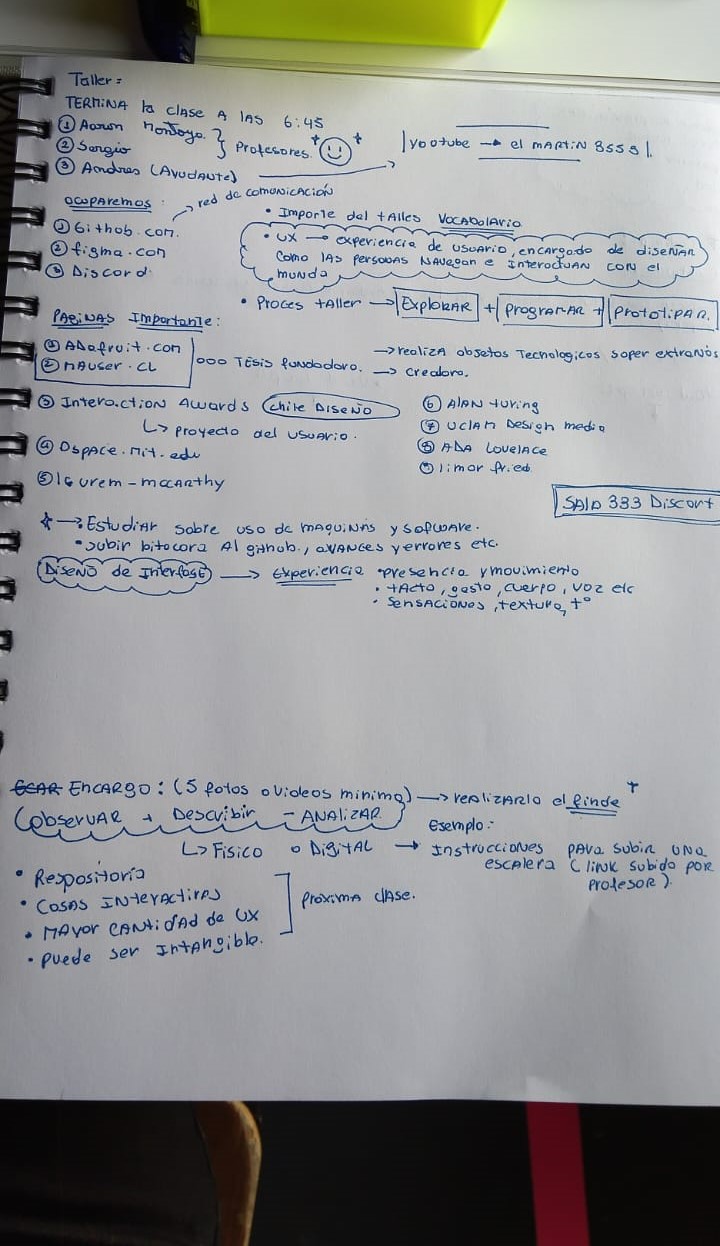 Taller:
TERMINA la clase A lAS 6:45
① Aaron Montoya.
② Sergio } Profesores.
③ Andres (AyuDANTE) →
|youtube → el MARTIN 8559|.
ocuparemos:
→ red de comunicación
① Github.com.
② figma.com
③ Discord.
• Importe del tAlles VOCABOlARIO
• UX → experiencia de usuario, encargado de diseñAR
como lAS personas NAvegan e Interactuan con el
mundo
• Proces tAller → ExplorAR + progrAMAR + prototipAR.
PAGINAS Importante:
① ADafruit.com
② MAuser.CL
ooo Tesis fundadora.
→ realiza objetos Tecnologicos soper extraños
→ creadora.
③ Interaction AwArds chile DISEÑO
↳ proyecto del usuario.
④ Dspace.mit.edu
⑤ laurem-mccArthy
⑥ AlAN turing
⑦ UCLAN Design media
⑧ ADA LovelAce
⑨ limor fried
SAlA 383 Discort
* → Estudiar sobre uso de mAquiNAs y sofware.
• subir bitacora Al github, avances y errores etc.
DISEÑO de Interfase → experiencia • presencia y movimiento
• tActo, gesto, cuerpo, voz etc
• sensACIONes, textura, t°
ENCARGO: (5 fotos o videos minimo) → reAlizArlo el finde +
(observAR + Describir - ANAlizAR
↳ Fisico o DigitAL → Ejemplo:
Instrucciones pAra subir una
escAlera (link subido por
profesor).
• Respositorio
• cosAs INterActivAs
• MAyor cANtidad de UX
• puede ser IntAngible.
próximA clAse.